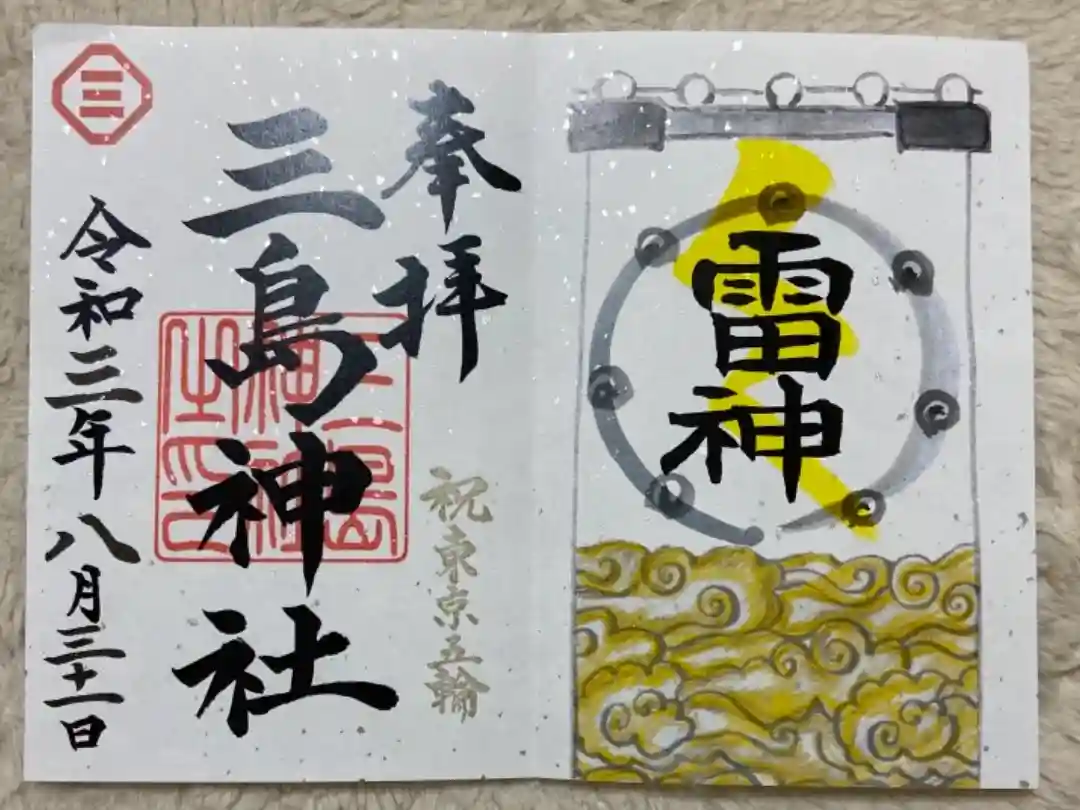 雷神
奉拝
祝東京五輪
三島神社
三島神社之印
三
令和三年八月三十一日